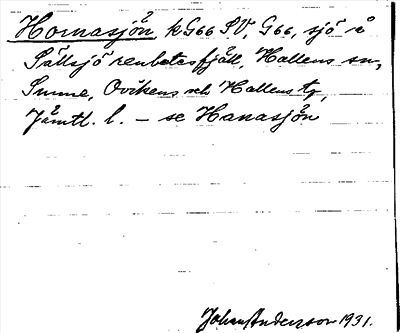 Hornasjön, k G66 SV, G66, sjö å
Sällsjö renbetesfjäll, Hallens sn,
Sunne, Ovikens och Hallens tg,
Jämtl. l. – se Hanasjön
Johan Anderson 1931.